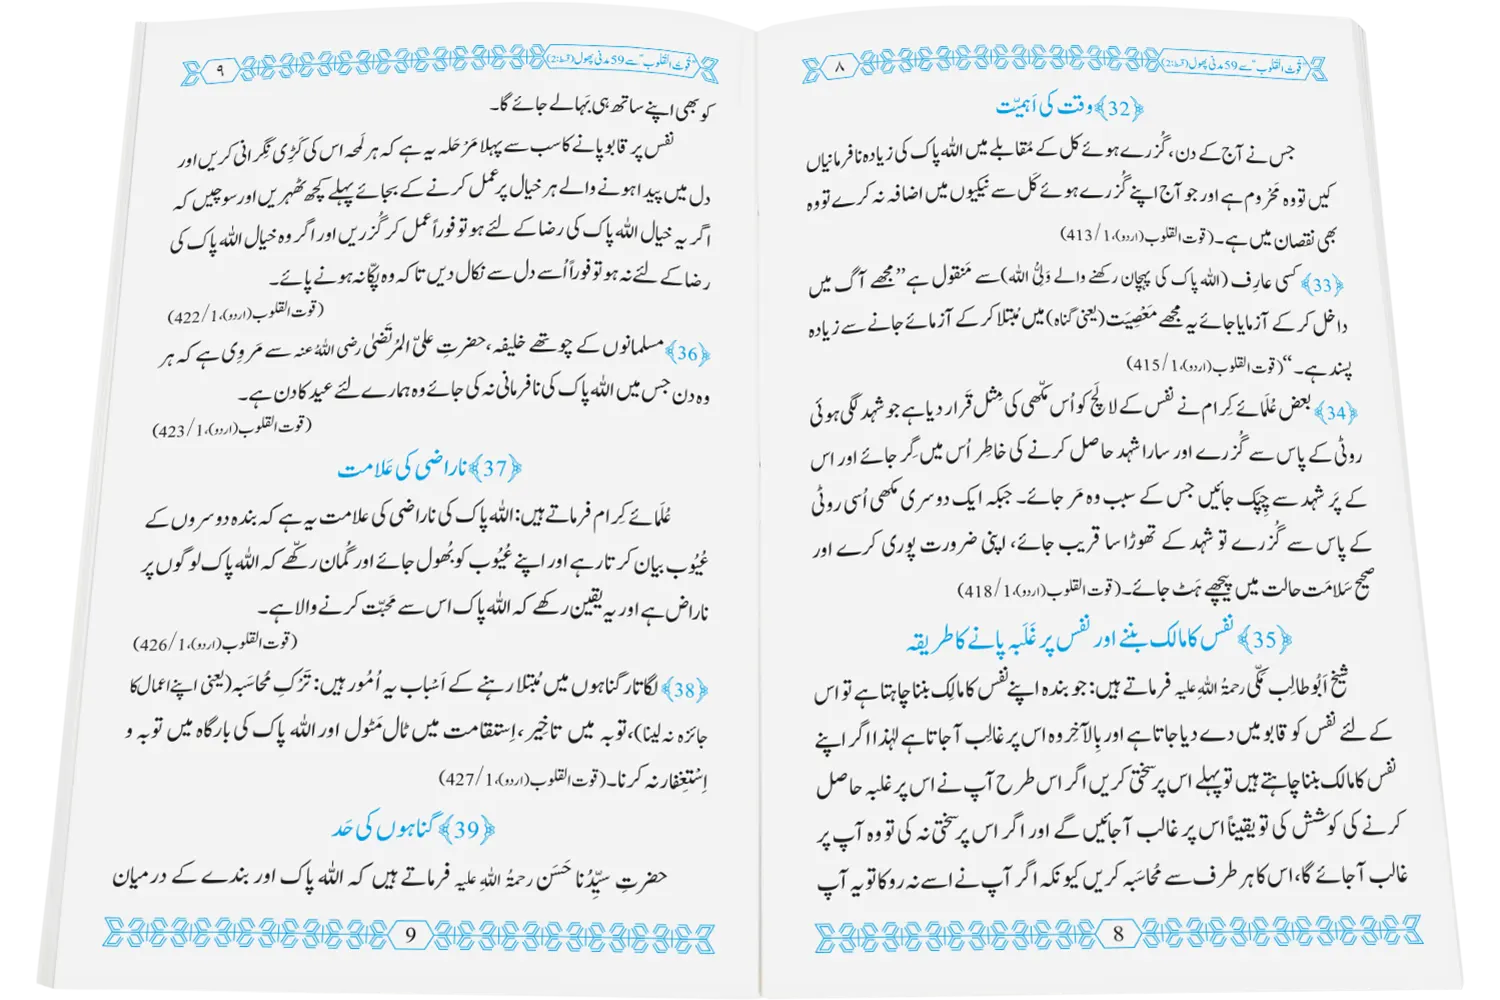 ۸
قُوتُ القلوب“ سے 59 مدنی پھول (قسط:2)
﴿32﴾ وقت کی اَہمیّت
جس نے آج کے دن، گُزرے ہوئے کل کے مُقابلے میں اللہ پاک کی زیادہ نافرمانیاں
کیں تو وہ مَحْروم ہے اور جو آج اپنے گُزرے ہوئے کَل سے نیکیوں میں اضافہ نہ کرے تو وہ
بھی نقصان میں ہے۔ (قوت القلوب (اردو)، 1/413)
﴿33﴾ کسی عارِف (اللہ پاک کی پہچان رکھنے والے وَلِیُّ اللہ) سے مَنقول ہے ”مجھے آگ میں
داخل کرکے آزمایا جائے یہ مجھے مَعْصِیَت (یعنی گناہ) میں مُبتلا کرکے آزمائے جانے سے زیادہ
پسند ہے۔“ (قوت القلوب (اردو)، 1/415)
﴿34﴾ بعض عُلَمائے کِرام نے نفس کے لالَچ کو اُس مکّھی کی مِثل قَرار دیا ہے جو شہد لگی ہوئی
روٹی کے پاس سے گُزرے اور سارا شہد حاصل کرنے کی خاطِر اُس میں گِر جائے اور اس
کے پَر شہد سے چِپک جائیں جس کے سبب وہ مَر جائے۔ جبکہ ایک دوسری مکھی اُسی روٹی
کے پاس سے گُزرے تو شہد کے تھوڑا سا قریب جائے، اپنی ضرورت پوری کرے اور
صحیح سَلامَت حالت میں پیچھے ہَٹ جائے۔ (قوت القلوب (اردو)، 1/418)
﴿35﴾ نفس کا مالک بننے اور نفس پر غَلَبہ پانے کا طریقہ
شیخ اَبُو طالِب مَکّی رحمۃُ اللہِ علیہ فرماتے ہیں: جو بندہ اپنے نفس کا مالک بننا چاہتا ہے تو اس
کے لئے نفس کو قابو میں دے دیا جاتا ہے اور بِالآخِر وہ اس پر غالِب آ جاتا ہے لہٰذا اگر اپنے
نفس کا مالک بننا چاہتے ہیں تو پہلے اس پر سختی کریں اگر اس طرح آپ نے اس پر غلبہ حاصل
کرنے کی کوشش کی تو یقیناً اس پر غالب آ جائیں گے اور اگر اس پر سختی نہ کی تو وہ آپ پر
غالب آ جائے گا، اس کا ہر طرف سے مُحاسَبہ کریں کیونکہ اگر آپ نے اسے نہ روکا تو یہ آپ
8
۹
قُوتُ القلوب“ سے 59 مدنی پھول (قسط:2)
کو بھی اپنے ساتھ ہی بَہالے جائے گا۔
نفس پر قابو پانے کا سب سے پہلا مَرْحَلہ یہ ہے کہ ہر لمحہ اس کی کَڑی نِگرانی کریں اور
دل میں پیدا ہونے والے ہر خیال پر عمل کرنے کے بجائے پہلے کچھ ٹھہریں اور سوچیں کہ
اگر یہ خیال اللہ پاک کی رضا کے لئے ہو تو فوراً عمل کر گُزریں اور اگر وہ خیال اللہ پاک کی
رضا کے لئے نہ ہو تو فوراً اُسے دل سے نکال دیں تاکہ وہ پکّا نہ ہونے پائے۔
(قوت القلوب (اردو)، 1/422)
﴿36﴾ مسلمانوں کے چوتھے خلیفہ، حضرتِ علیّ المُرتَضٰی رضی اللہُ عنہ سے مَروِی ہے کہ ہر
وہ دن جس میں اللہ پاک کی نافرمانی نہ کی جائے وہ ہمارے لئے عید کا دن ہے۔
(قوت القلوب (اردو)، 1/423)
﴿37﴾ ناراضی کی عَلامت
عُلَمائے کِرام فرماتے ہیں: اللہ پاک کی ناراضی کی علامت یہ ہے کہ بندہ دوسروں کے
عُیُوب بیان کرتا رہے اور اپنے عُیُوب کو بُھول جائے اور گُمان رکّھے کہ اللہ پاک لوگوں پر
ناراض ہے اور یہ یقین رکھے کہ اللہ پاک اس سے مَحبّت کرنے والا ہے۔
(قوت القلوب (اردو)، 1/426)
﴿38﴾ لگاتار گناہوں میں مُبتلا رہنے کے اَسْباب یہ اُمُور ہیں: تَرْکِ مُحاسَبہ (یعنی اپنے اعمال کا
جائزہ نہ لینا)، توبہ میں تاخِیر، اِستقامت میں ٹال مَٹول اور اللہ پاک کی بارگاہ میں توبہ و
اِسْتِغفار نہ کرنا۔ (قوت القلوب (اردو)، 1/427)
﴿39﴾ گناہوں کی حَد
حضرتِ سیِّدُنا حَسَن رحمۃُ اللہِ علیہ فرماتے ہیں کہ اللہ پاک اور بندے کے درمیان
9